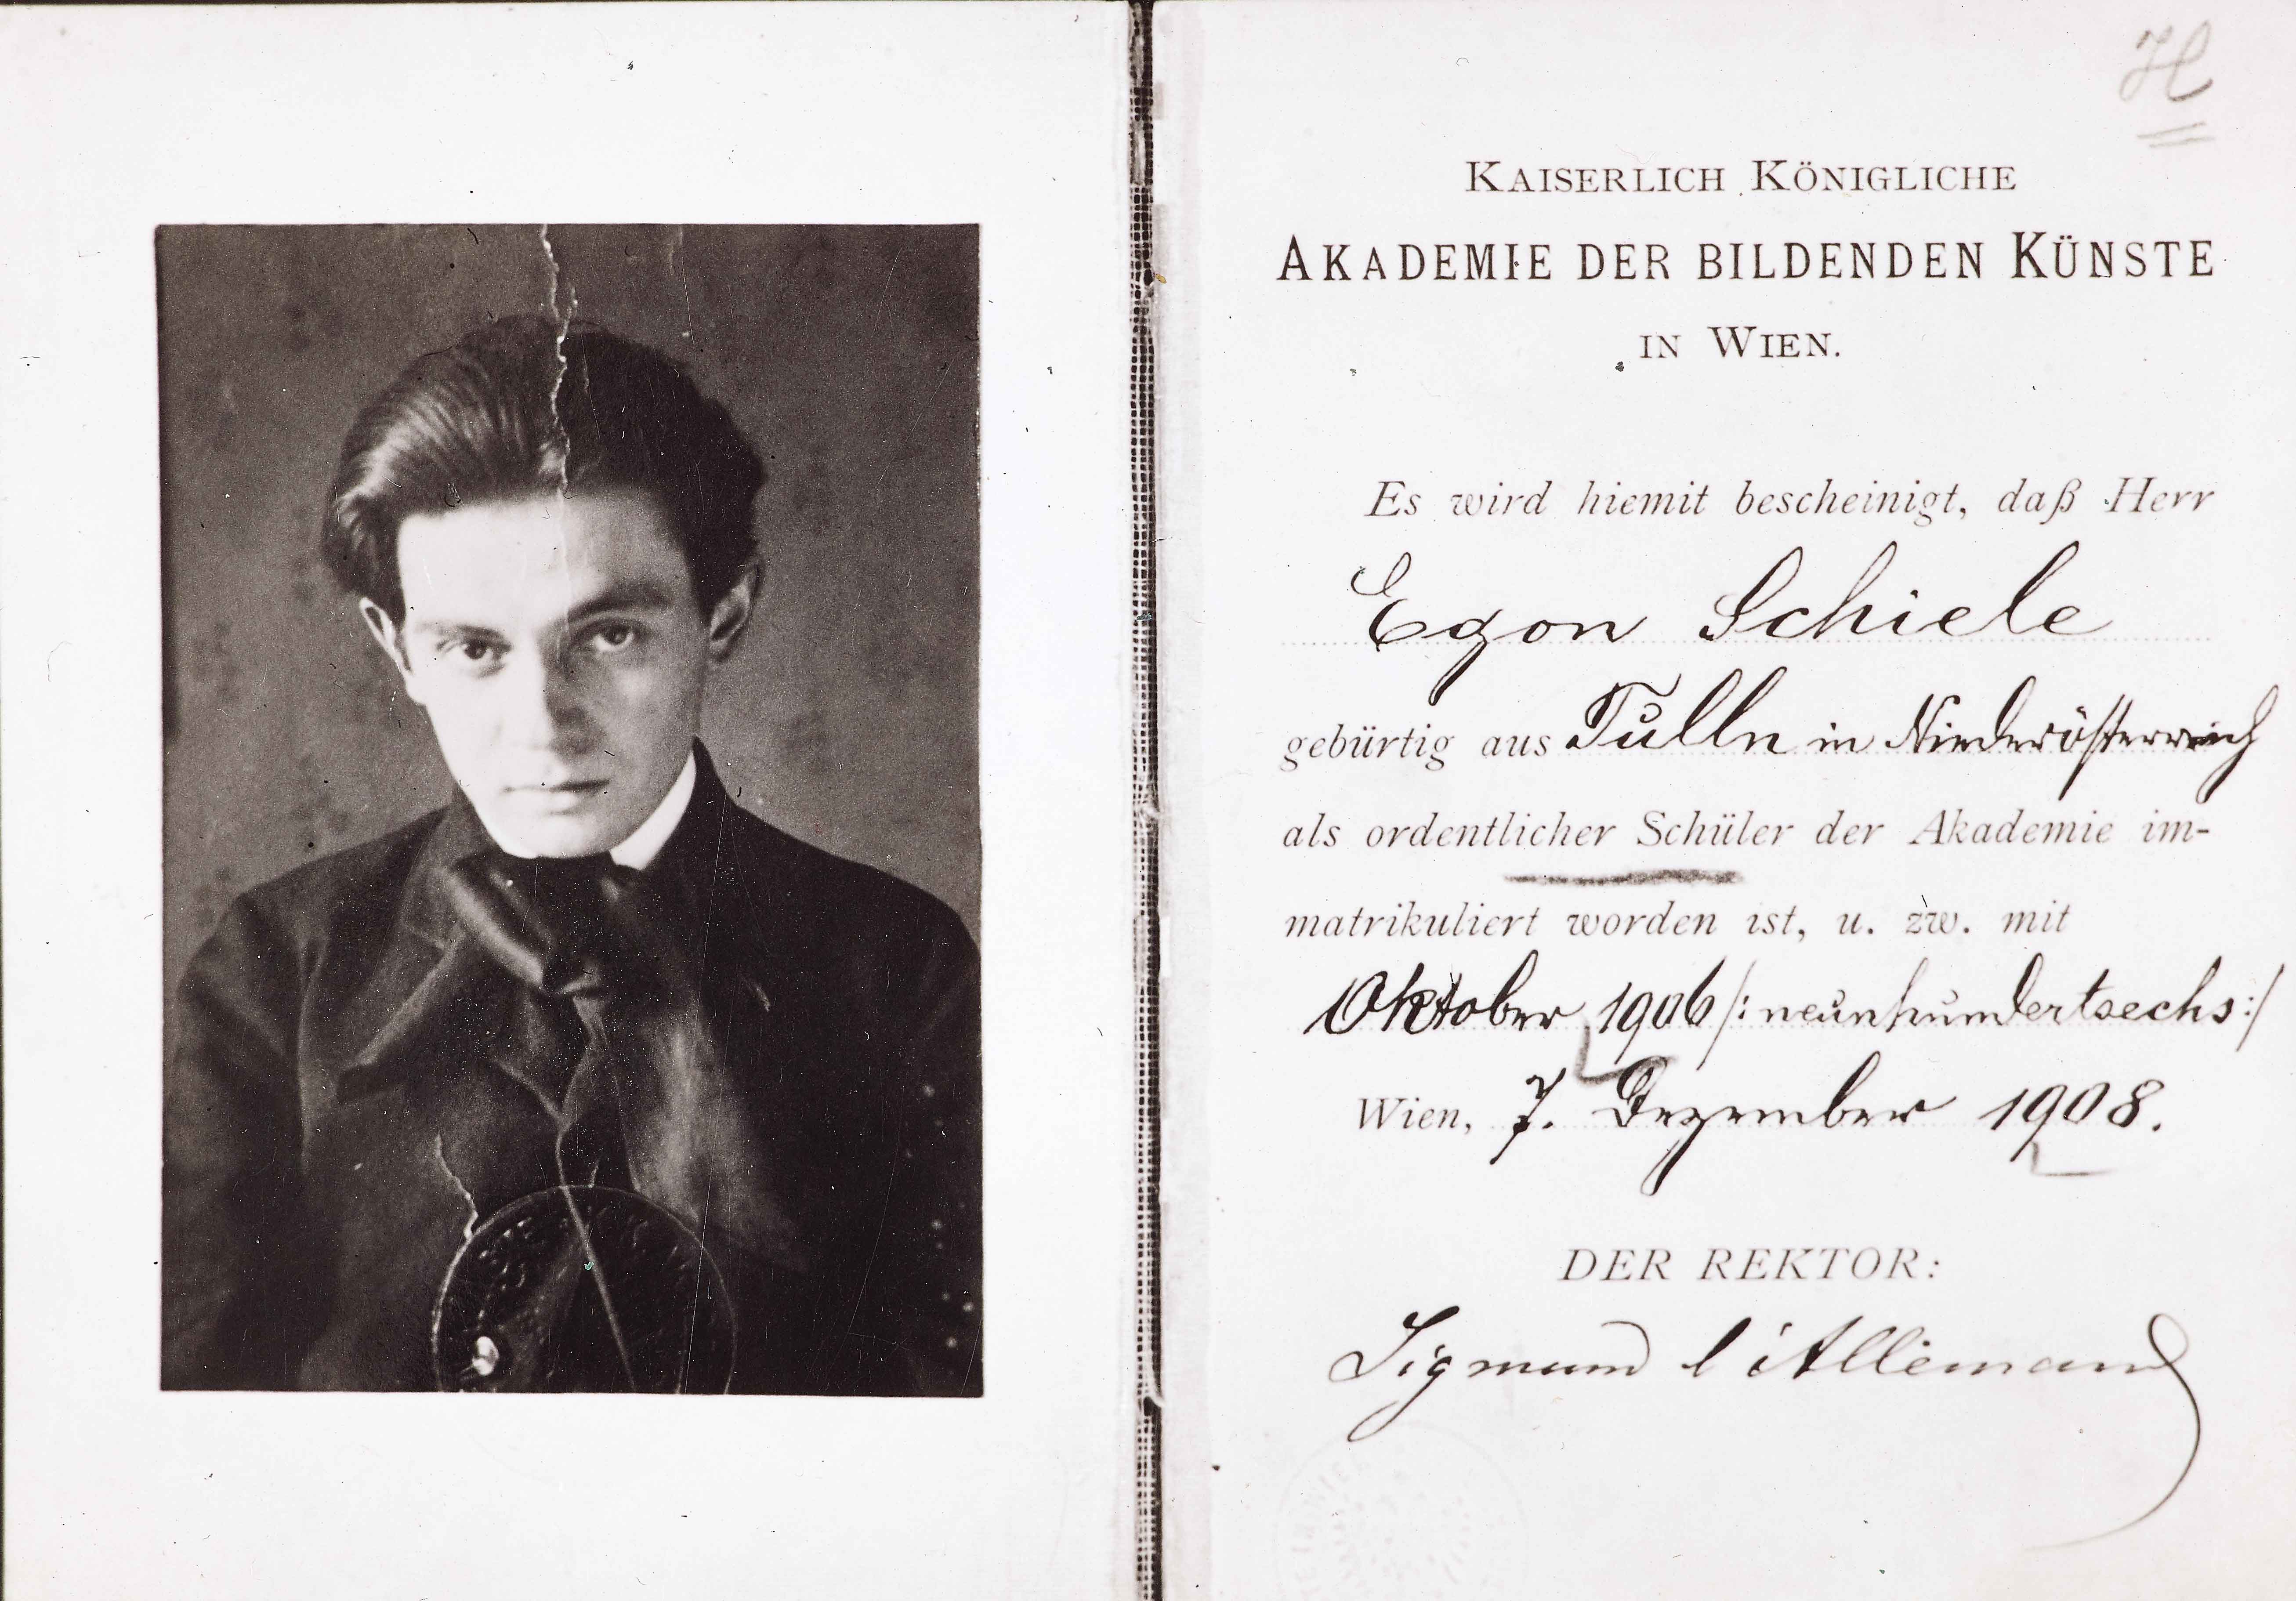 H
KAISERLICH KÖNIGLICHE
AKADEMIE DER BILDENDEN KÜNSTE
IN WIEN.
Es wird hiemit bescheinigt, daß Herr
Egon Schiele
gebürtig aus Tulln in Niederösterreich
als ordentlicher Schüler der Akademie im-
matrikuliert worden ist, u. zw. mit
Oktober 1906 /: neunhundertsechs :/
Wien, 7. Dezember 1908.
DER REKTOR:
Sigmund l'Allemand